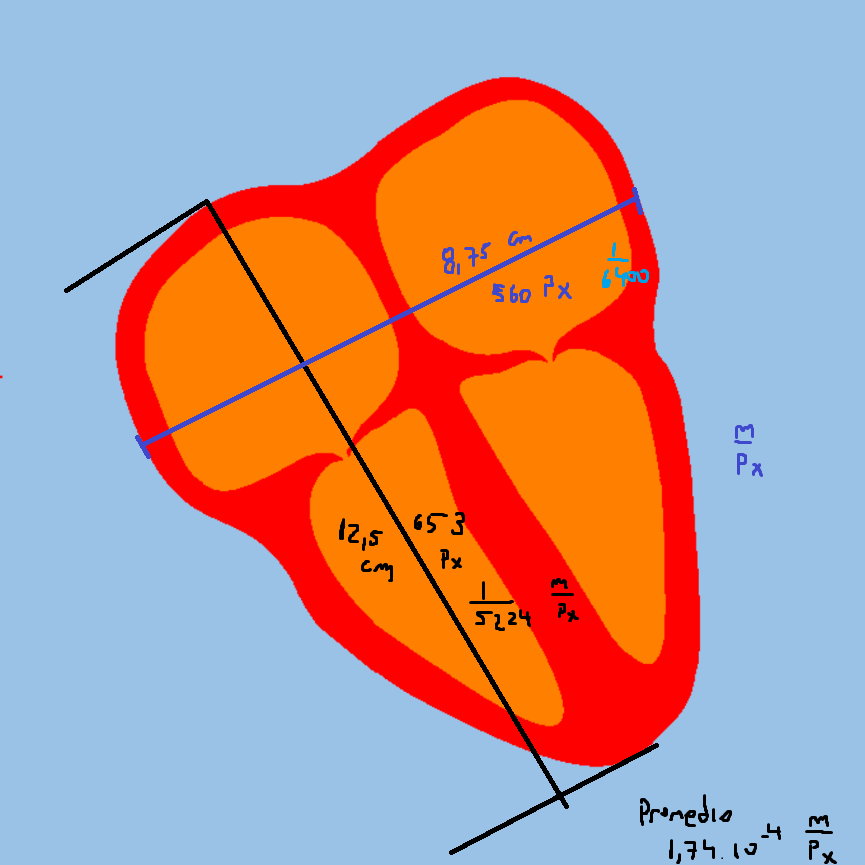 8,75 cm
560 Px
1/6400
m/Px
12,5 cm
653 Px
1/5224 m/Px
Promedio
1,74.10^-4 m/Px